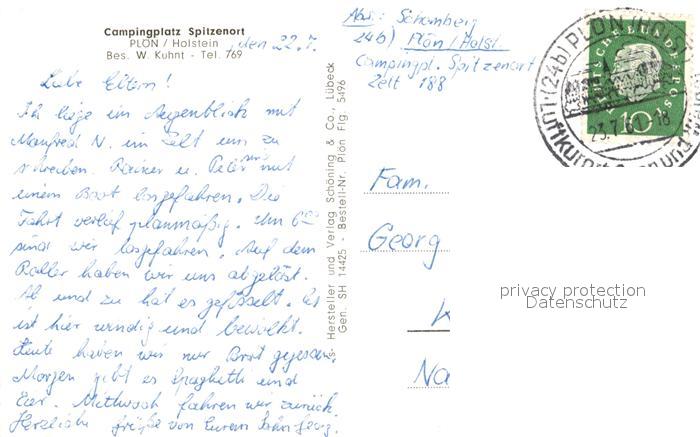 Campingplatz Spitzenort
PLÖN / Holstein
Bes. W. Kuhnt - Tel. 769
, den 22.7.
Liebe Eltern!
Ich liege im Augenblick mit
Manfred N. im Zelt um zu
schreiben. Rainer u. Peter sind mit
einem Boot losgefahren. Die
Fahrt verlief planmäßig. Um 6⁰⁰
sind wir losgefahren. Auf dem
Roller haben wir uns abgelöst.
Ab und zu hat es gefisselt. Es
ist hier windig und bewölkt.
Heute haben wir nur Brot gegessen.
Morgen gibt es Spaghetti und
Eier. Mittwoch fahren wir zurück.
Herzliche Grüße von Eurem Sohn Georg.
Hersteller und Verlag Schöning & Co., Lübeck
Gen. SH 14425 - Bestell-Nr. Plön Flg. 5496
Abs.: Schomberg
24b) Plön / Holst.
Campingpl. Spitzenort
Zelt 188
Fam.
Georg
Na
DEUTSCHE BUNDESPOST
10
(24b) PLÖN (HOLST)
23.7.61-18
Luftkurort
privacy protection
Datenschutz